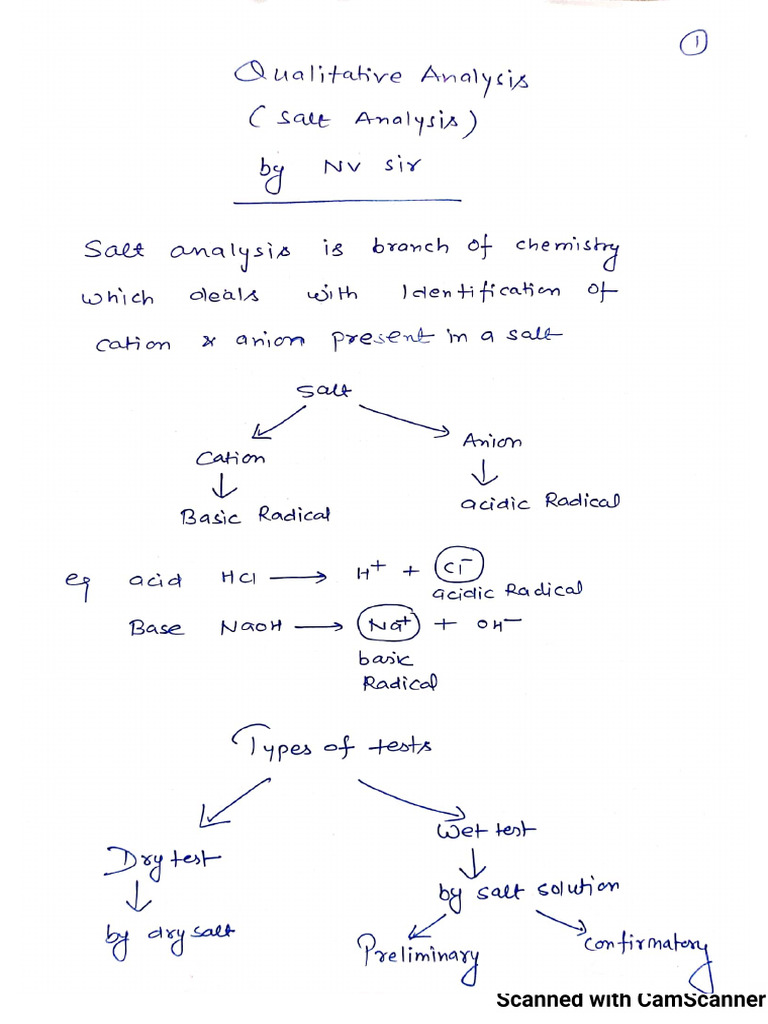 1
Qualitative Analysis
(Salt Analysis)
by NV sir
Salt analysis is branch of chemistry
which deals with Identification of
cation & anion present in a salt
Salt
Cation
Anion
Basic Radical
acidic Radical
eg acid HCl → H⁺ + Cl⁻
acidic Radical
Base NaOH → Na⁺ + OH⁻
basic
Radical
Types of tests
Dry test
Wet test
by dry salt
by salt solution
Preliminary
Confirmatory
Scanned with CamScanner